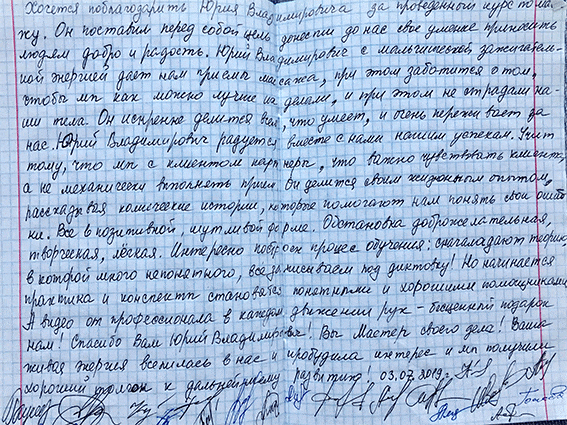 Хочется поблагодарить Юрия Владимировича за проведенный курс по мас
жу. Он поставил перед собой цель донести до нас свое умение приносить
людям добро и радость. Юрий Владимирович с мальчишеской, зажигатель-
ной энергией дает нам приемы массажа, при этом заботится о том,
чтобы мы как можно лучше их делали, и при этом не страдали на-
ши тела. Он искренне делится всем, что умеет, и очень переживает за
нас. Юрий Владимирович радуется вместе с нами нашим успехам. Учит
тому, что мы с клиентом партнеры, что важно чувствовать клиента,
а не механически выполнять прием. Он делится своим жизненным опытом,
рассказывая комические истории, которые помогают нам понять свои ошиб
ки. Все в позитивной, шутливой форме. Обстановка доброжелательная,
творческая, лёгкая. Интересно построен процесс обучения: сначала дают теорию
в которой много непонятного, все записываем под диктовку! Но начинается
практика и конспекты становятся понятными и хорошими помощниками
А видео от профессионала в каждом движении рук - бесценный подарок
нам! Спасибо Вам Юрий Владимирович! Вы Мастер своего дела! Ваша
живая энергия вселилась в нас и пробудила интерес и мы получили
хороший толчок к дальнейшему развитию! 03.07.2019г.